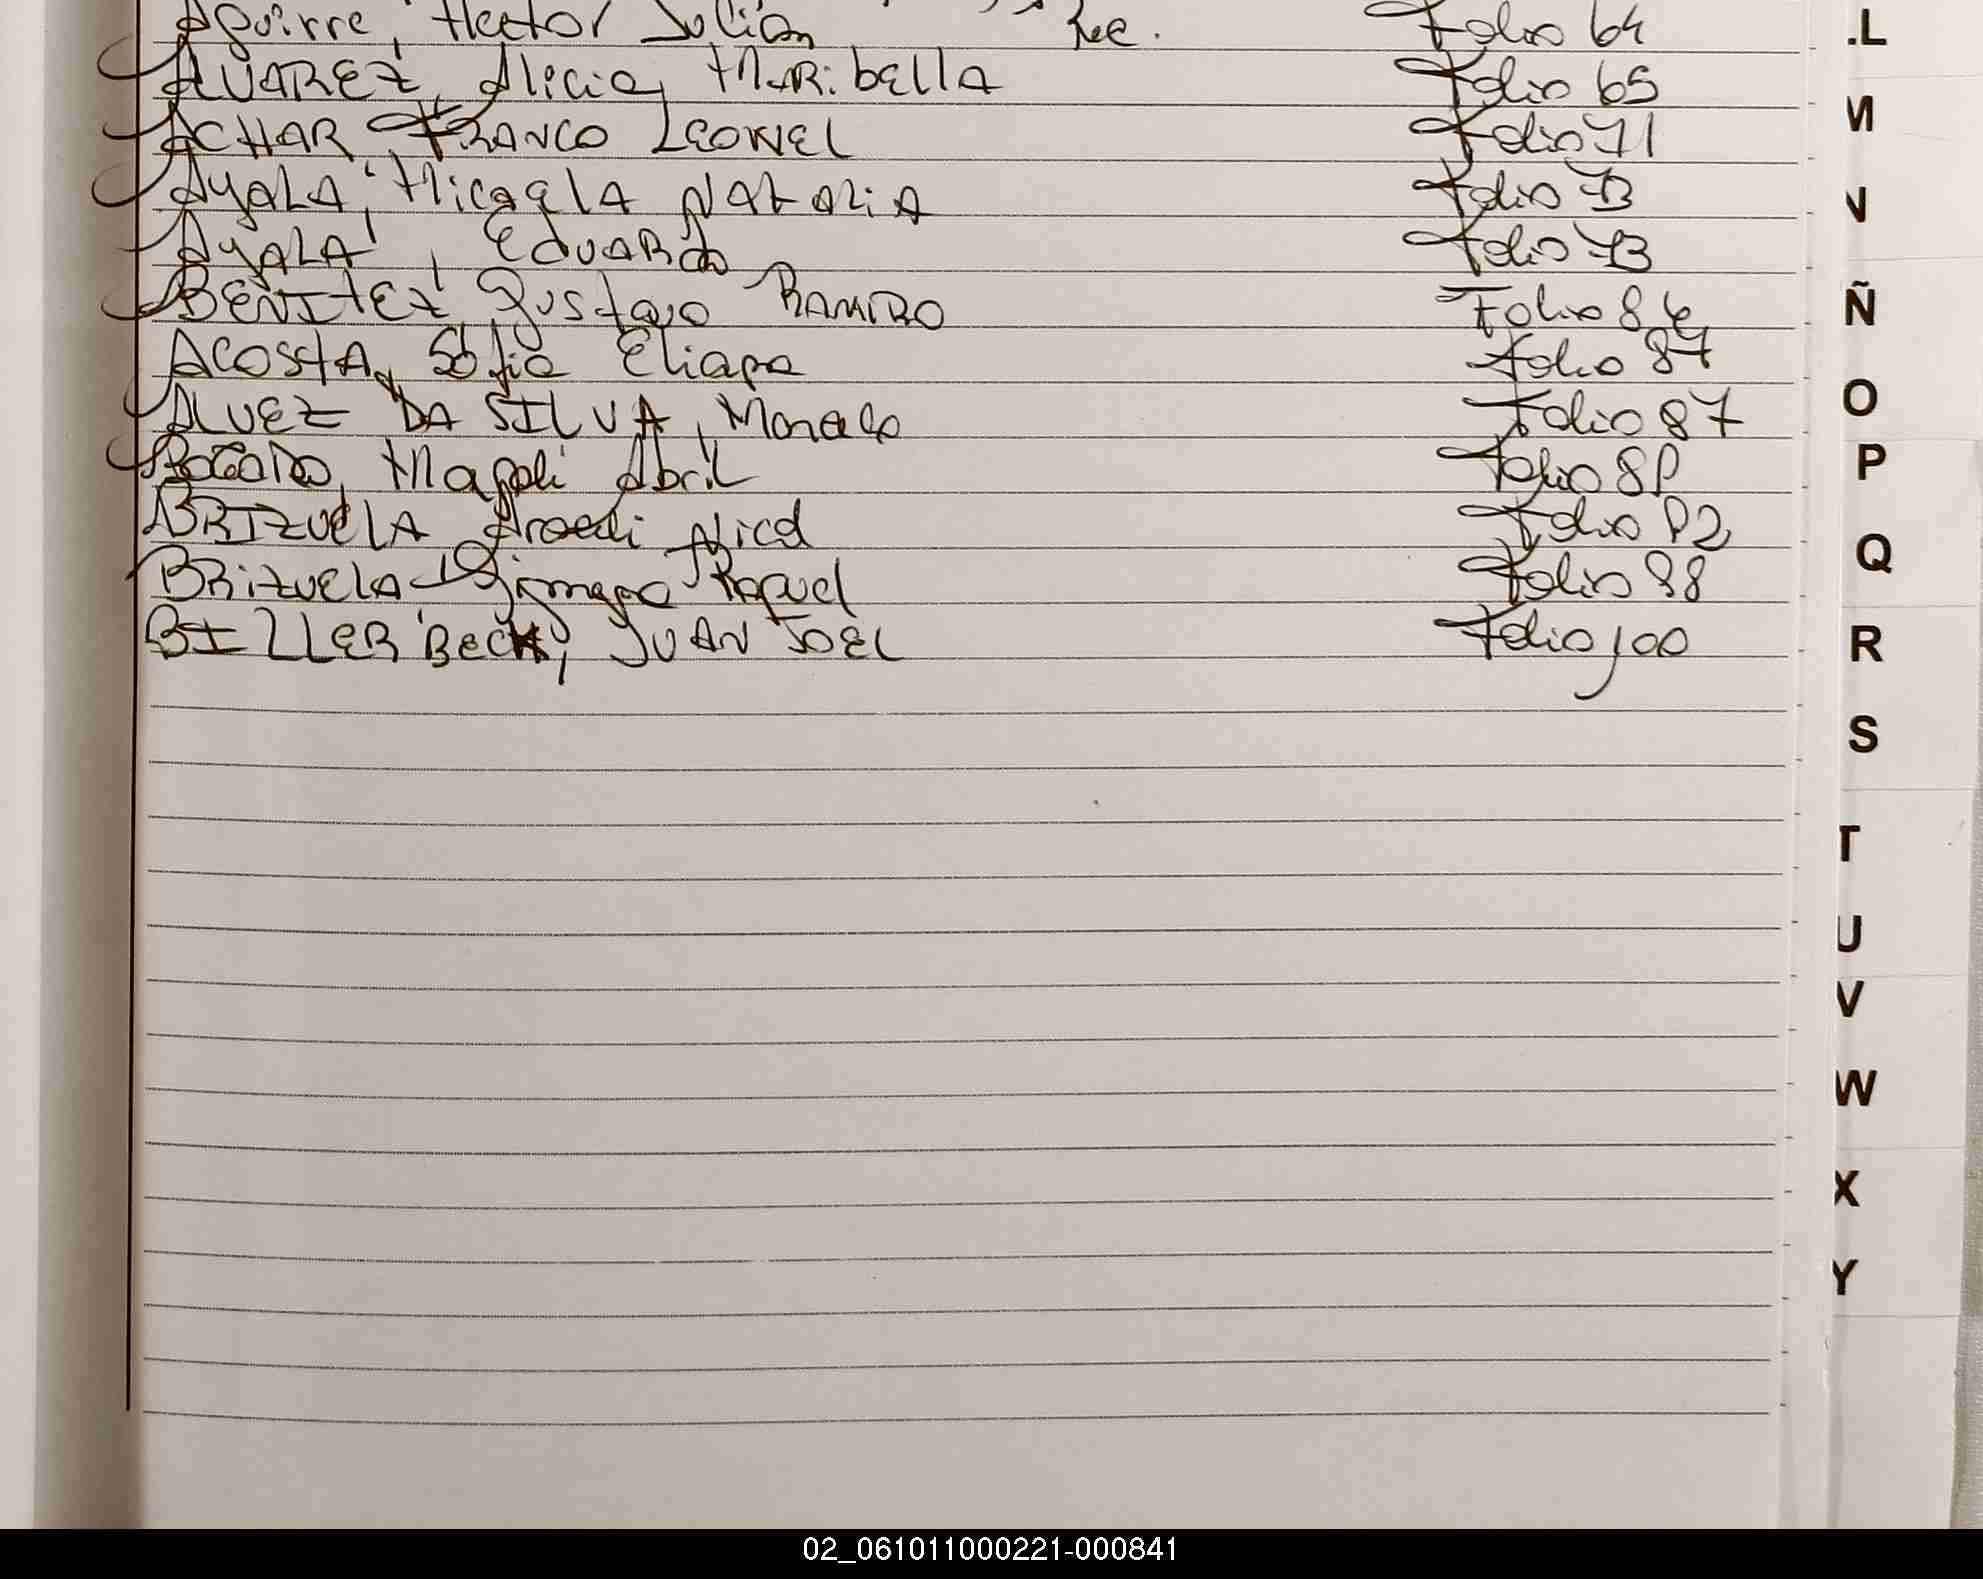 Aguirre, Hector Julián Rec. Folio 64
ALVAREZ, Alicia MARibElla Folio 65
ACHAR FRANCO LEONEL Folio 71
AyALA, MicaelA NATALiA Folio 73
AyALA, EduARdo Folio 73
BENITEZ Gustavo RAMIRO Folio 86
ACOSTA, Sofia Eliana Folio 87
ALVEZ DA SILVA, Marcelo Folio 87
Magali Abril Folio 89
BRIZUELA Araceli Nicol Folio 92
BRiZUELA Jimena Raquel Folio 98
BILLERBECK, JUAN JOEL Folio 100
L
M
N
Ñ
O
P
Q
R
S
T
U
V
W
X
Y
02_061011000221-000841